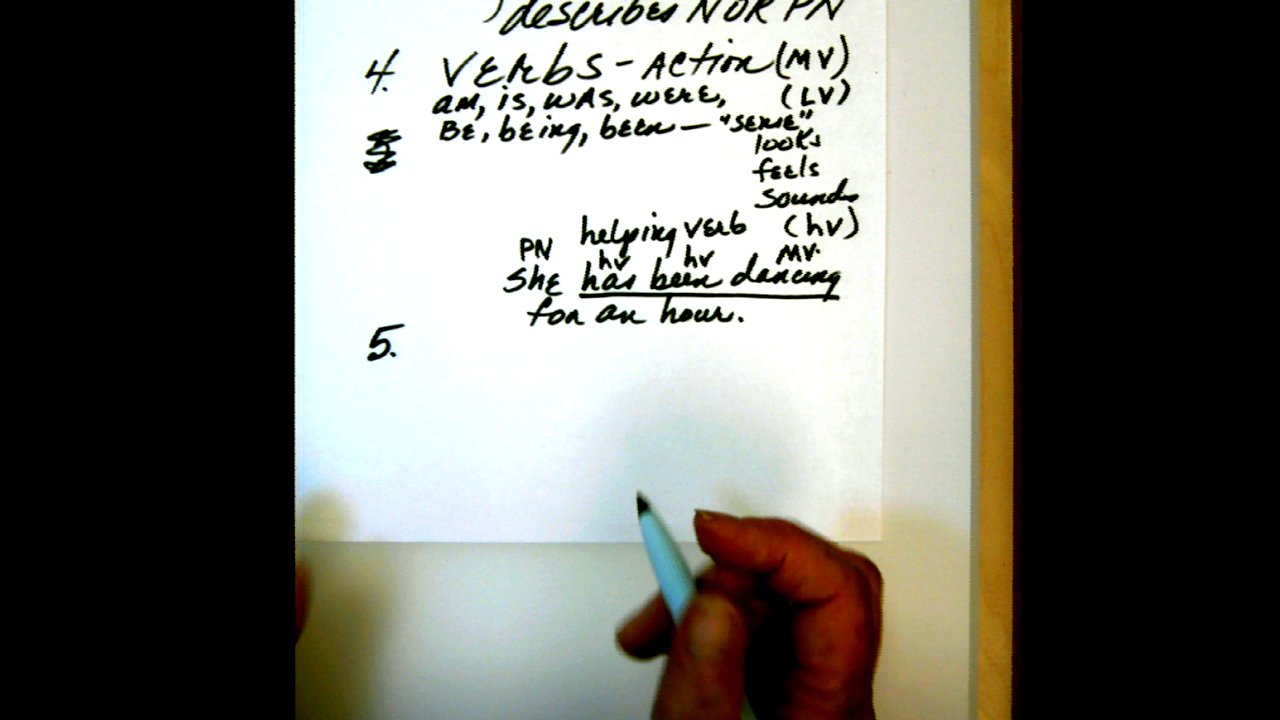 describes N OR PN
4. VERbS - ACtion (MV)
am, is, was, were, (LV)
BE, being, been — "sense"
looks
feels
sounds
helping verb (hv)
PN hv hv MV.
She has been dancing
for an hour.
5.